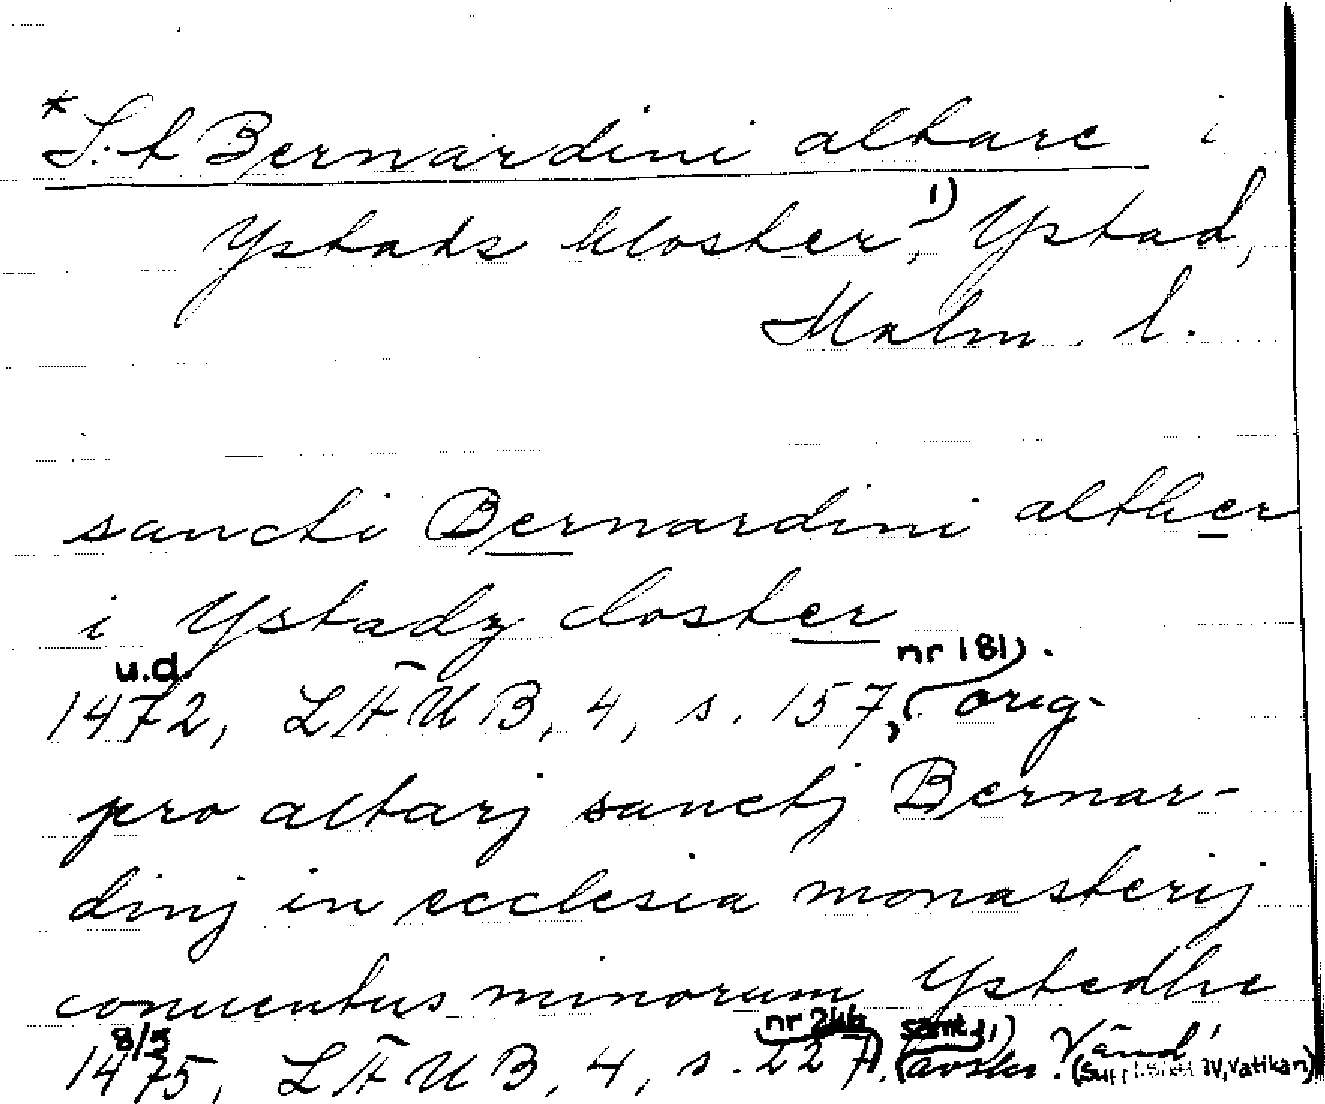 * S:t Bernardini altare i
Ystads kloster,1) Ystad,
Malm. l.
sancti Bernardini alther
i Ystadz closter
u.d. nr 181).
1472, LÄUB, 4, s. 157, (orig.
pro altarj sanctj Bernar-
dinj in ecclesia monasterij
conuentus minorum Ystedhe
8/5 nr 246 samt. 1)
1475, LÄUB, 4, s. 227), (avskr. Vänd!
(Suppl. IV, Vatikan)